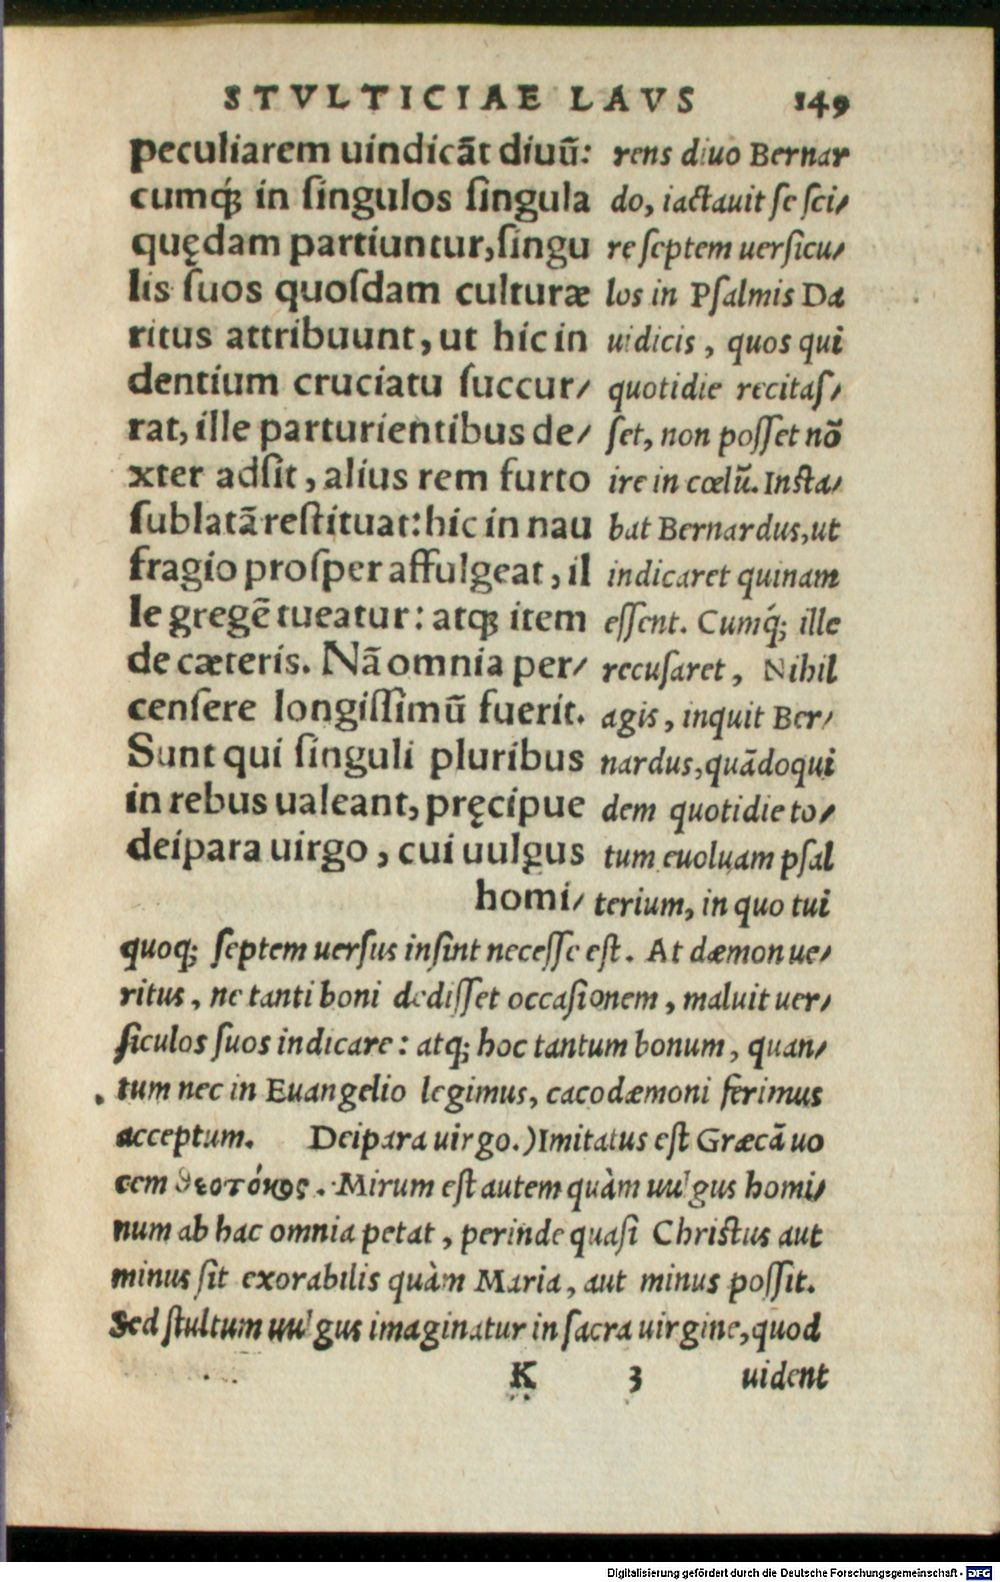 STVLTICIAE LAVS 149
peculiarem uindicāt diuū:
cumq́; in ſingulos ſingula
quędam partiuntur, ſingu
lis ſuos quoſdam culturæ
ritus attribuunt, ut hic in
dentium cruciatu ſuccur/
rat, ille parturientibus de/
xter adſit, alius rem furto
ſublatā reſtituat: hic in nau
fragio proſper affulgeat, il
le gregē tueatur: atq; item
de cæteris. Nā omnia per/
cenſere longiſſimū fuerit.
Sunt qui ſinguli pluribus
in rebus ualeant, pręcipue
deipara uirgo, cui uulgus
homi/
rens diuo Bernar
do, iactauit ſe ſci/
re ſeptem uerſicu/
los in Pſalmis Da
uidicis, quos qui
quotidie recitaſ/
ſet, non poſſet nō
ire in cœlū. Inſta/
bat Bernardus, ut
indicaret quinam
eſſent. Cumq́; ille
recuſaret, Nihil
agis, inquit Ber/
nardus, quādoqui
dem quotidie to/
tum euoluam pſal
terium, in quo tui
quoq; ſeptem uerſus inſint neceſſe eſt. At dæmon ue/
ritus, ne tanti boni dediſſet occaſionem, maluit uer/
ſiculos ſuos indicare: atq; hoc tantum bonum, quan/
tum nec in Euangelio legimus, cacodæmoni ferimus
acceptum. Deipara uirgo.) Imitatus eſt Græcā uo
cem θεοτόκος. Mirum eſt autem quàm uulgus homi/
num ab hac omnia petat, perinde quaſi Chriſtus aut
minus ſit exorabilis quàm Maria, aut minus poſſit.
Sed ſtultum uulgus imaginatur in ſacra uirgine, quod
K 3 uident
Digitalisierung gefördert durch die Deutsche Forschungsgemeinschaft - DFG